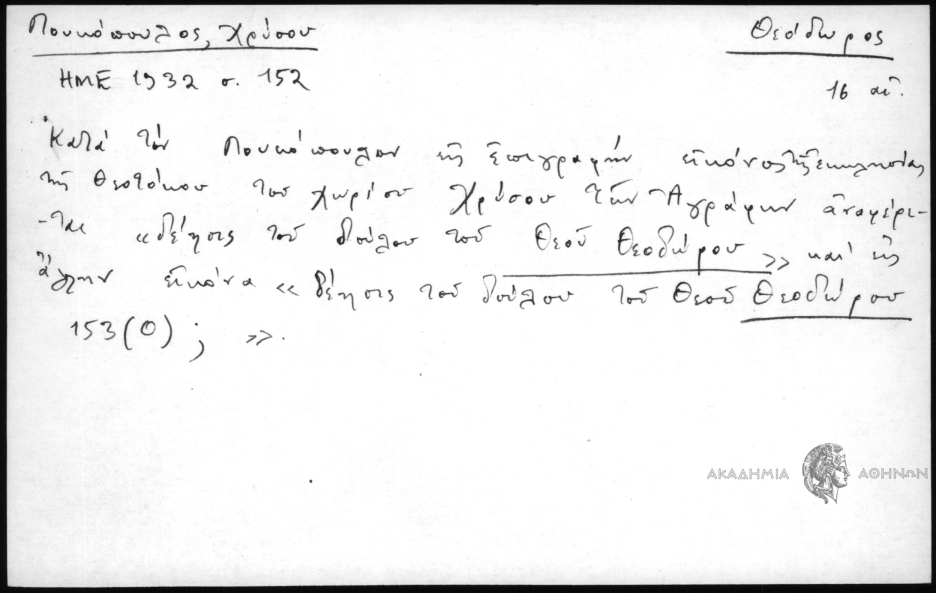 Πουκόπουλος, Χρύσου
Θεόδωρος
ΗΜΕ 1932 σ. 152
16 αἰ.
Κατὰ τὸν Πουκόπουλον εἰς ἐπιγραφὴν εἰκόνος τῆς ἐκκλησίας
τῆς Θεοτόκου τοῦ χωρίου Χρύσου τῶν Ἀγράφων ἀναφέρε-
-ται «δέησις τοῦ δούλου τοῦ Θεοῦ Θεοδώρου» καὶ εἰς
ἄλλην εἰκόνα «δέησις τοῦ δούλου τοῦ Θεοῦ Θεοδώρου
153(0); ».
ΑΚΑΔΗΜΙΑ ΑΘΗΝΩΝ